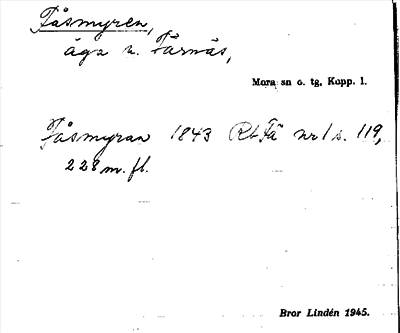 Fåsmyren,
äga n. Färnäs,
Mora sn o. tg, Kopp. l.
Fåsmyran 1843 Rb Fä nr 1 s. 119,
228 m. fl.
Bror Lindén 1945.